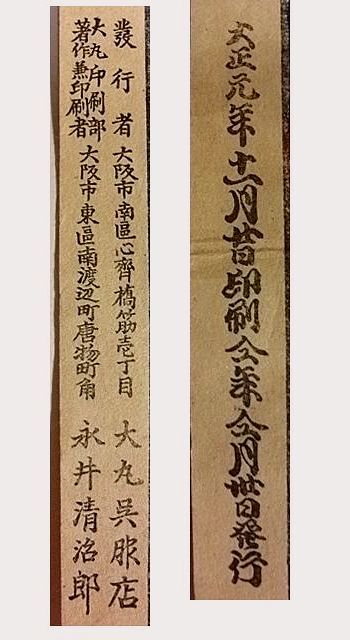 大正元年十一月廿日印刷仝年仝月卅日發行
發行者 大阪市南區心齊橋筋壱丁目 大丸呉服店
大丸印刷部
著作兼印刷者 大阪市東區南渡辺町唐物町角 永井清治郎